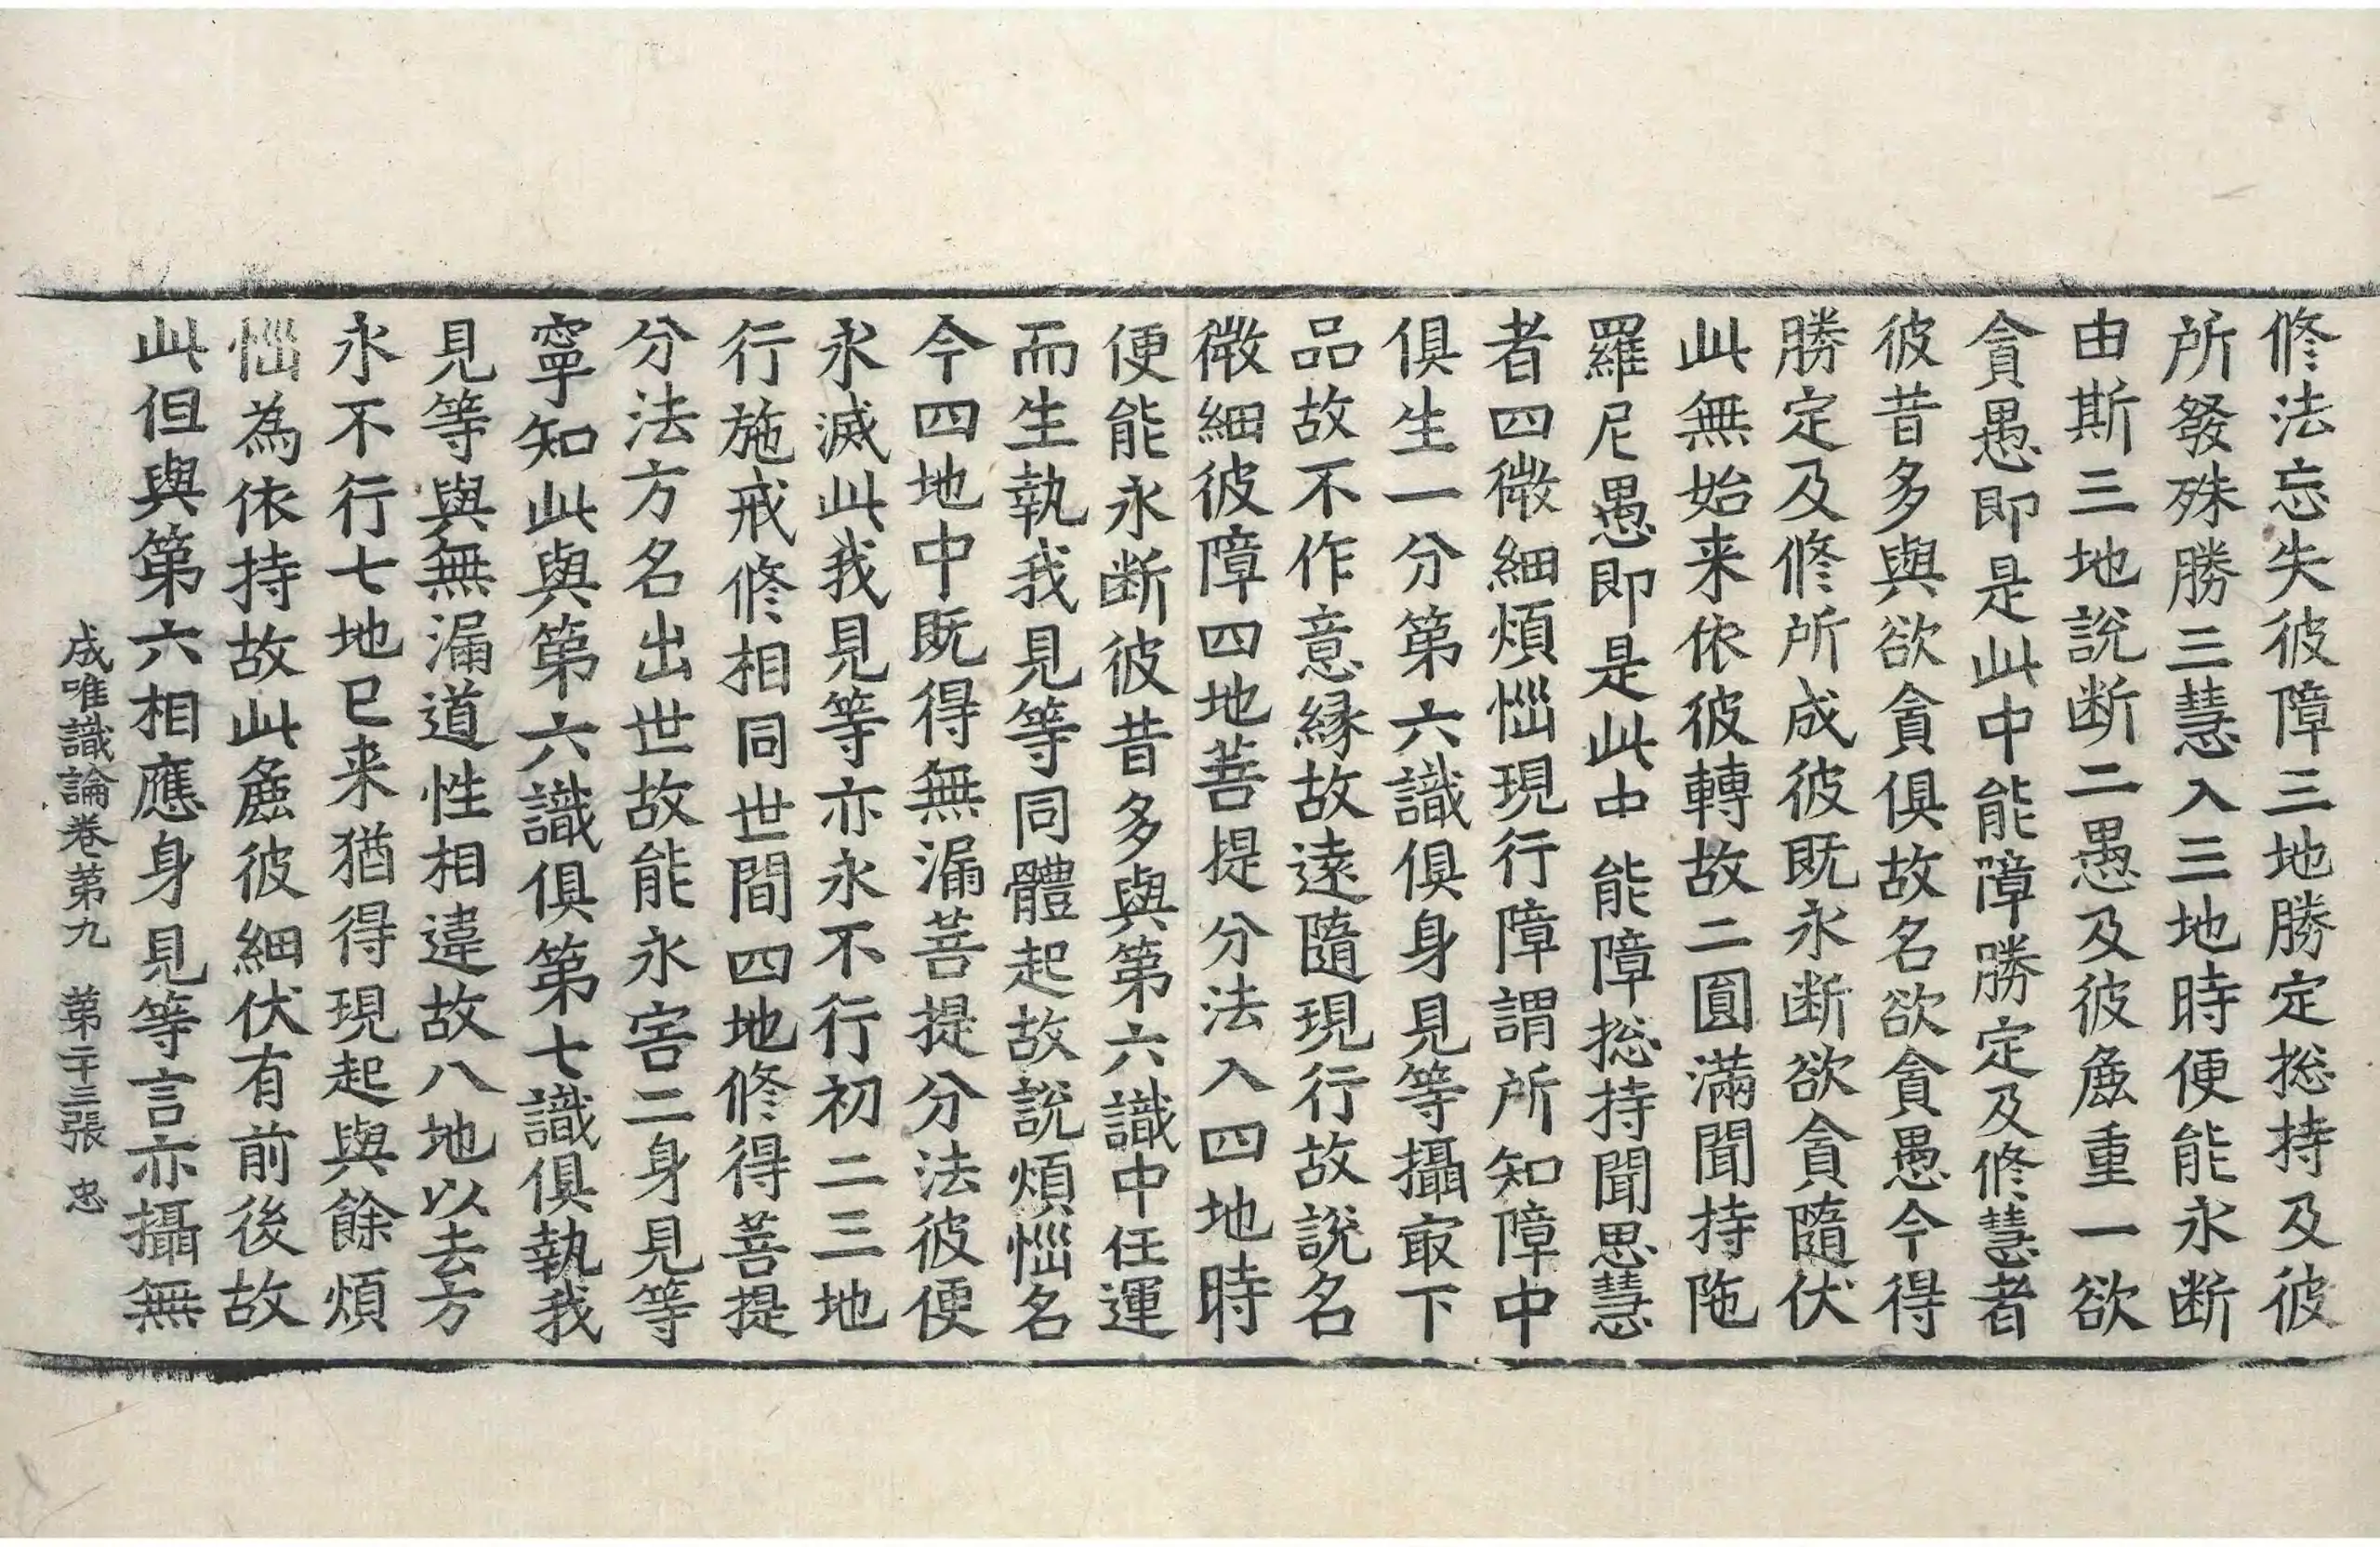 修法忘失彼障三地勝定捴持及彼
所發殊勝三慧入三地時便能永断
由斯三地說断二愚及彼麁重一欲
貪愚即是此中能障勝定及修慧者
彼昔多與欲貪俱故名欲貪愚今得
勝定及修所成彼既永断欲貪隨伏
此無始来依彼轉故二圓滿聞持陁
羅尼愚即是此中能障捴持聞思慧
者四微細煩惱現行障謂所知障中
俱生一分第六識俱身見等攝冣下
品故不作意緣故遠隨現行故說名
微細彼障四地菩提分法入四地時
便能永断彼昔多與第六識中任運
而生執我見等同體起故說煩惱名
今四地中既得無漏菩提分法彼便
永滅此我見等亦永不行初二三地
行施戒修相同世間四地修得菩提
分法方名出世故能永害二身見等
寧知此與第六識俱第七識俱執我
見等與無漏道性相違故八地以去方
永不行七地已来猶得現起與餘煩
惱為依持故此麁彼細伏有前後故
此但與第六相應身見等言亦攝無
成唯識論卷第九　第二十三張　忠